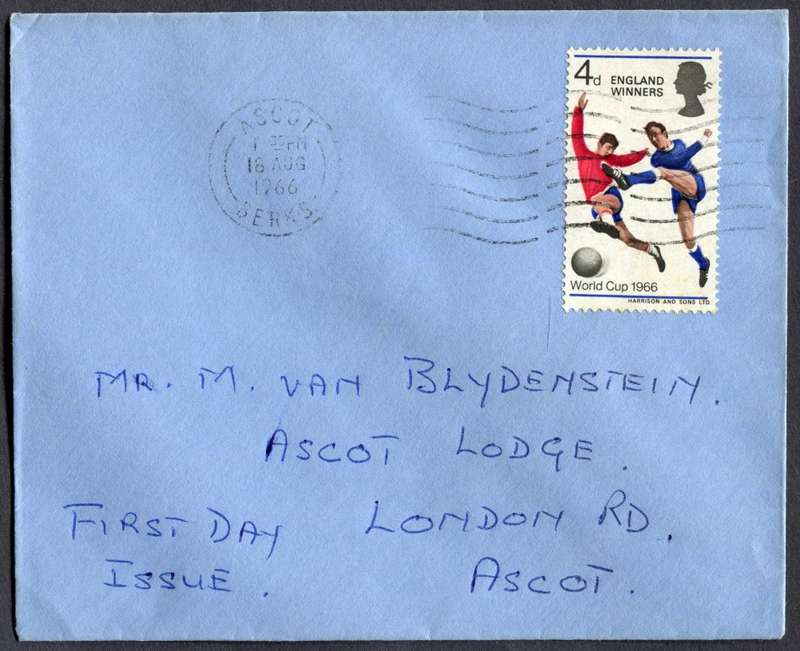 4d ENGLAND
WINNERS
World Cup 1966
HARRISON AND SONS LTD
ASCOT
18 AUG
1966
BERKS
MR. M. VAN BLYDENSTEIN.
ASCOT LODGE.
FIRST DAY LONDON RD.
ISSUE. ASCOT.